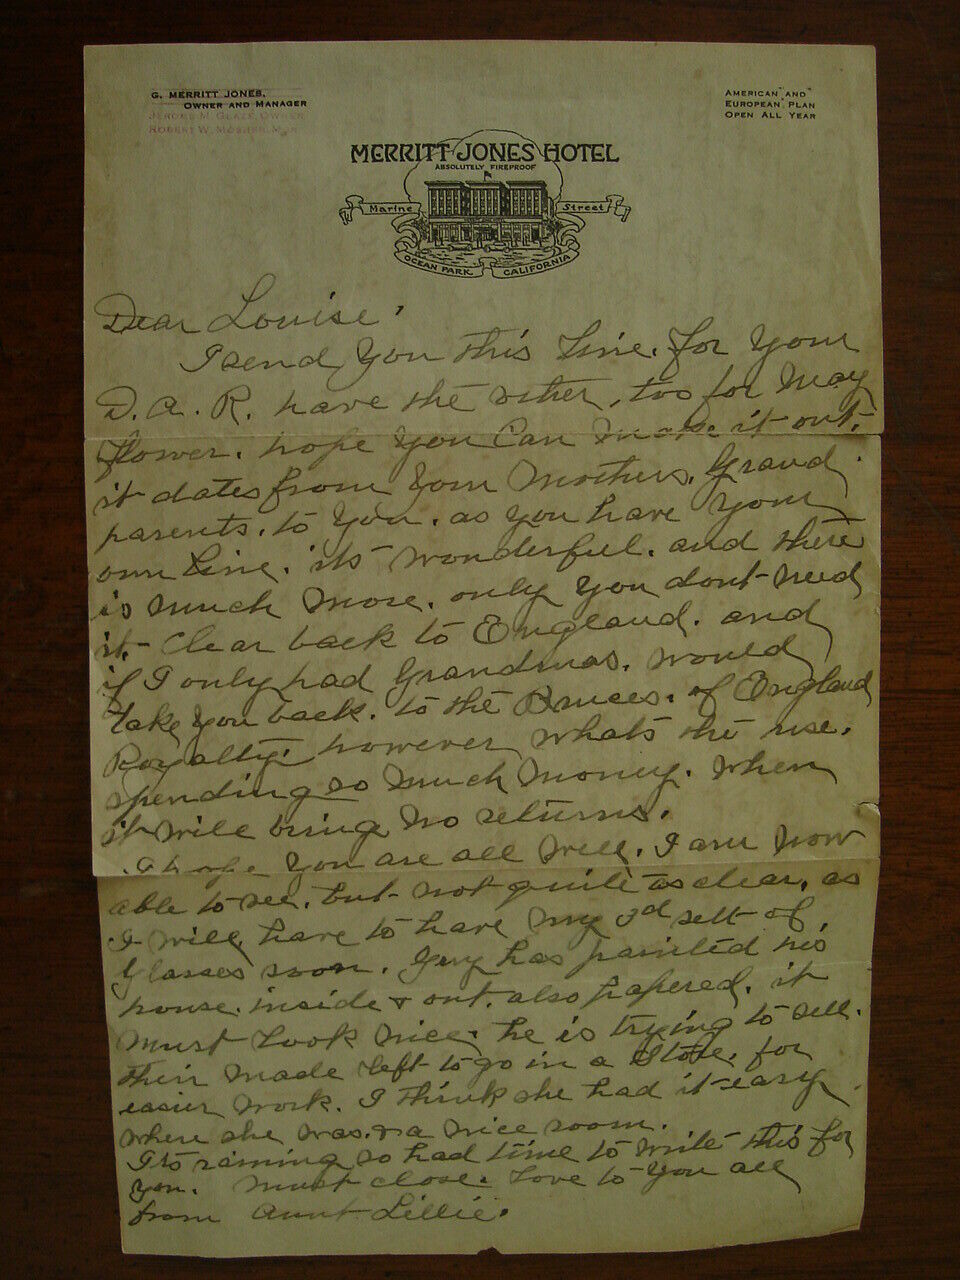 G. MERRITT JONES,
OWNER AND MANAGER
JEROME M. GLAZE, OWNER
ROBERT W. MOSHER, MGR
AMERICAN AND
EUROPEAN PLAN
OPEN ALL YEAR
MERRITT JONES HOTEL
ABSOLUTELY FIREPROOF
Marine Street
OCEAN PARK CALIFORNIA
Dear Louise,
I send you this Line. for your
D. A. R. have the other, too for May
flower. hope you Can make it out.
it dates from your Mothers. Grand
parents. to You. as you have your
own Line. its wonderful. and there
is much more. only you dont need
it - Clear back to England. and
if I only had Grandmas. would
take you back. to the Bruces. of England
Royalty. however whats the use.
spending so much money. when
it will bring no returns.
I hope you are all well. I am now
able to see. but not quite as clear. as
I will have to have my 3d sett of
Glasses soon. Guy has painted his
house. inside & out. also papered. it
must Look nice. he is trying to sell.
their made left to go in a Store. for
easier work. I think she had it easy
where she was. & a nice room.
Its raining so had time to write this for
you. must close. Love to you all
from Aunt Lillie.